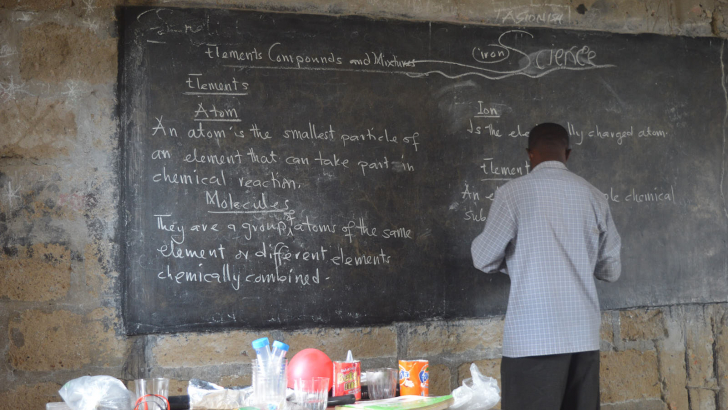 Elements Compounds and Mixtures
(iron) Science
Elements
Atom
An atom is the smallest particle of
an element that can take part in
chemical reaction.
Molecules
They are a group of atoms of the same
element or different elements
chemically combined.
Ion
Is the ele lly charged atom.
Element
An e ple chemical
sub